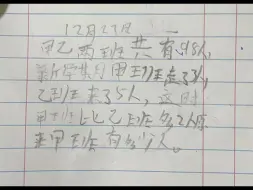 12月23日
甲乙两班共有98人,
新学期甲班走了3人,
乙班来了5人,这时
甲班比乙班多2人原
来甲班有多少人。